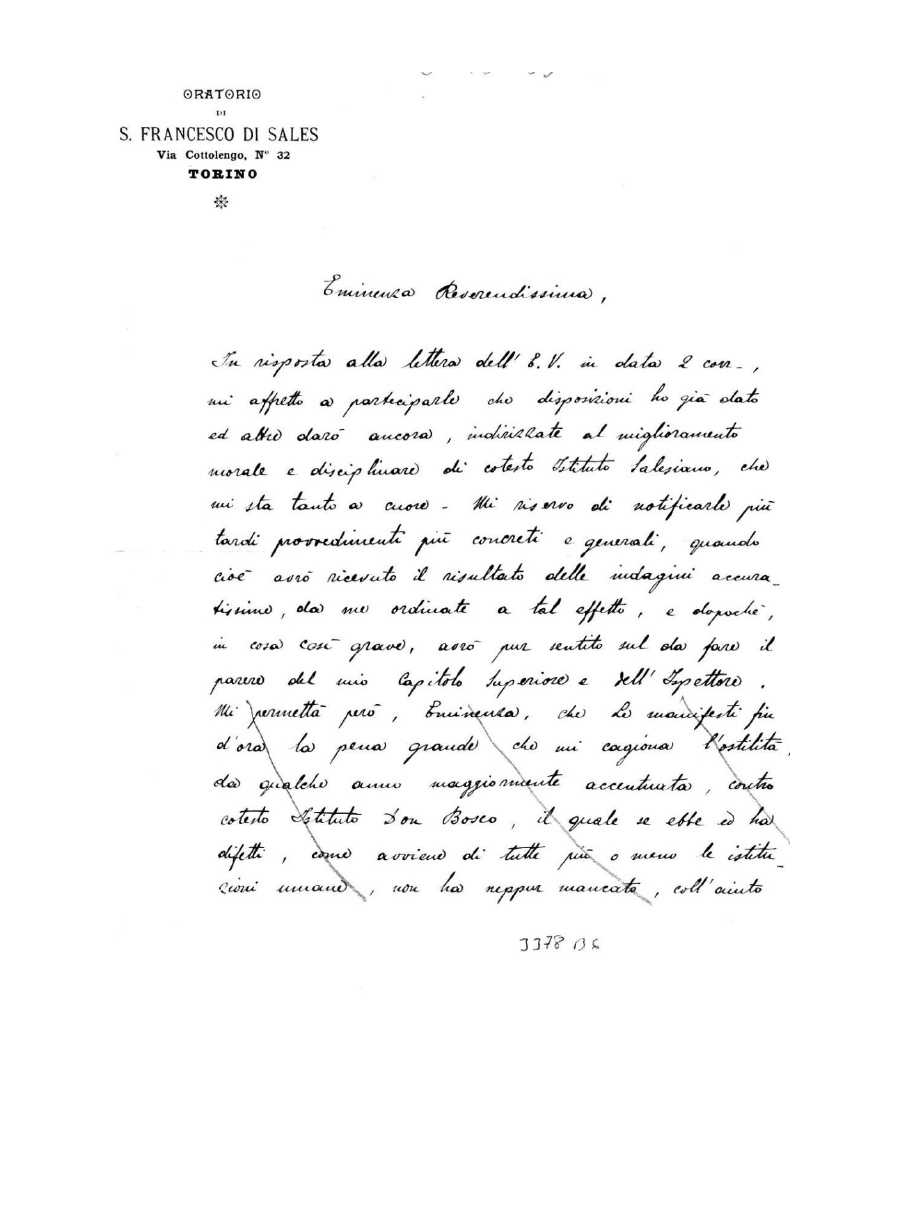 ORATORIO
DI
S. FRANCESCO DI SALES
Via Cottolengo, N° 32
TORINO
Eminenza Reverendissima,
In risposta alla lettera dell' E. V. in data 2 corr-,
mi affretto a parteciparle che disposizioni ho già dato
ed altre darò ancora, indirizzate al miglioramento
morale e disciplinare di cotesto Istituto Salesiano, che
mi sta tanto a cuore - Mi riservo di notificarle più
tardi provvedimenti più concreti e generali, quando
cioè avrò ricevuto il risultato delle indagini accura-
tissime, da me ordinate a tal effetto, e dopochè,
in cosa così grave, avrò pur sentito sul da fare il
parere del mio Capitolo Superiore e dell' Ispettore.
Mi permetta però, Eminenza, che Le manifesti fin
d'ora la pena grande che mi cagiona l'ostilità,
da qualche anno maggiormente accentuata, contro
cotesto Istituto Don Bosco, il quale se ebbe ed ha
difetti, come avviene di tutte più o meno le istitu-
zioni umane, non ha neppur mancato, coll'aiuto
3378 B6